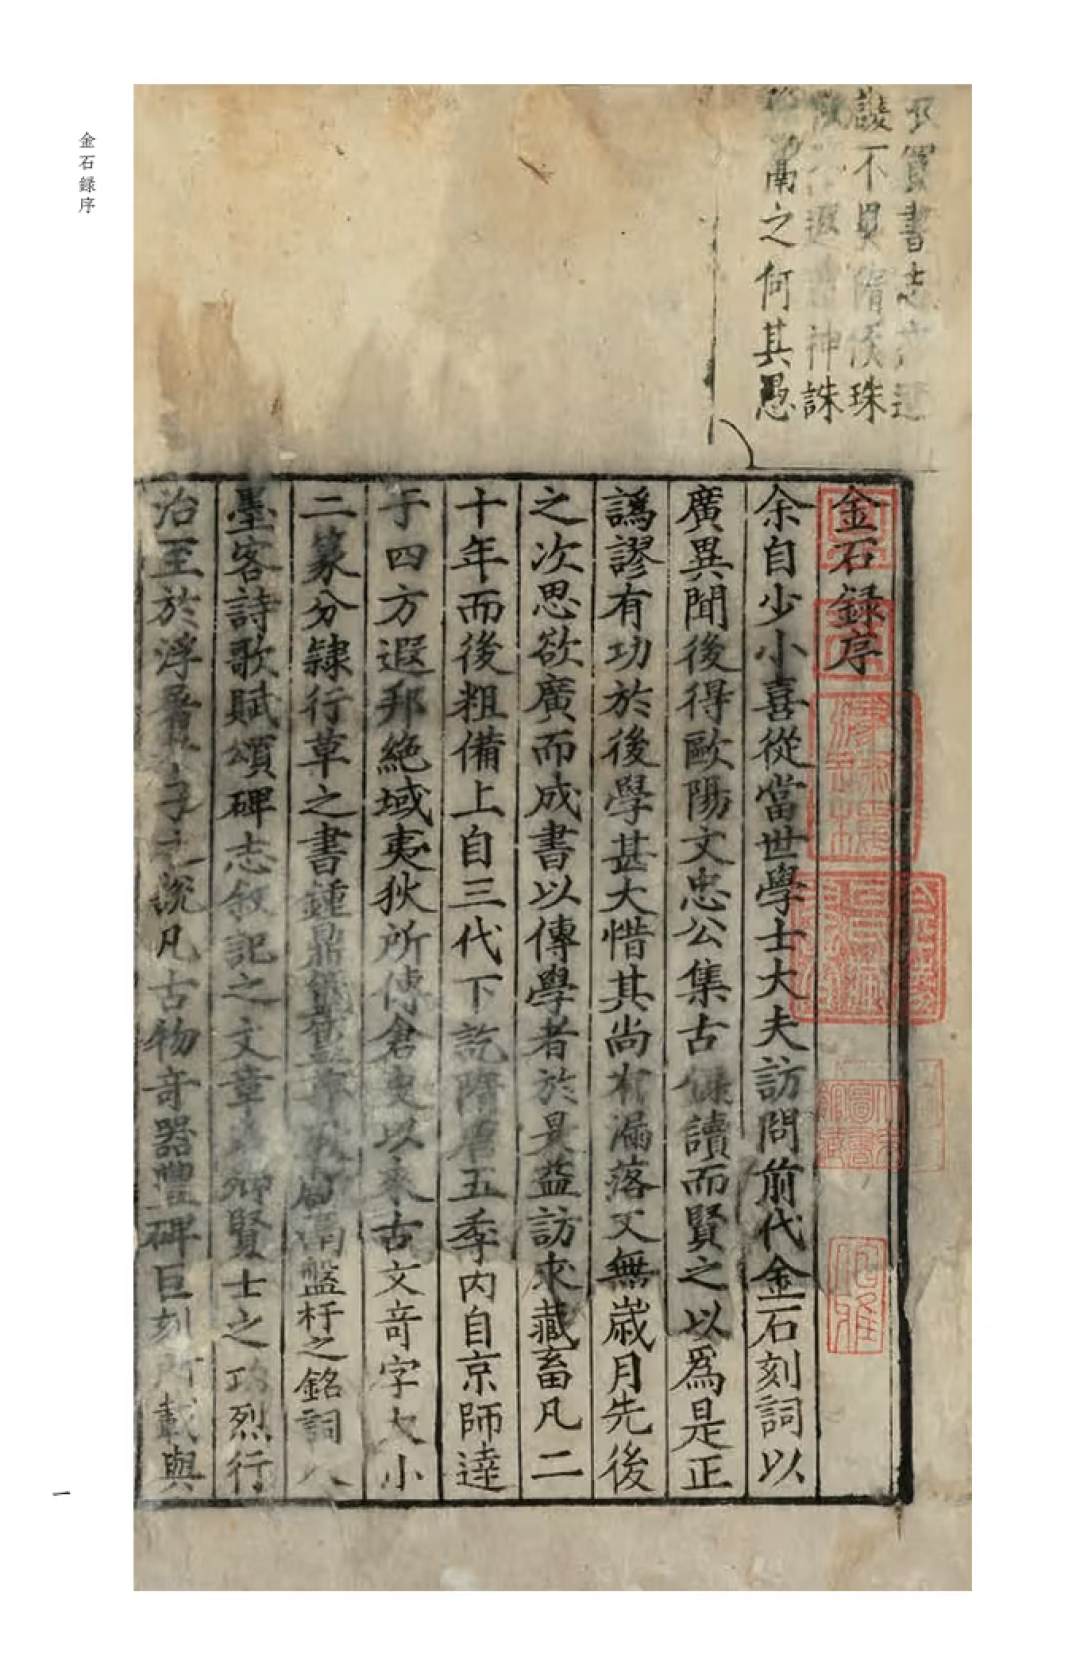 金石録序
不實書志
諁不異隋侯珠
神誅
鬲之何其愚
金石録序
余自少小喜從當世學士大夫訪問前代金石刻詞以
廣異聞後得歐陽文忠公集古録讀而賢之以爲是正
譌謬有功於後學甚大惜其尚有漏落又無歲月先後
之次思欲廣而成書以傳學者於是益訪求藏畜凡二
十年而後粗備上自三代下訖隋唐五季内自京師達
于四方遐邦絶域夷狄所傳倉史以來古文奇字大小
二篆分隷行草之書鍾鼎鬲盤杅之銘詞人
墨客詩歌賦頌碑志叙記之文章名卿賢士之功烈行
治至於浮屠老子之說凡古物奇器豐碑巨刻所載與
一